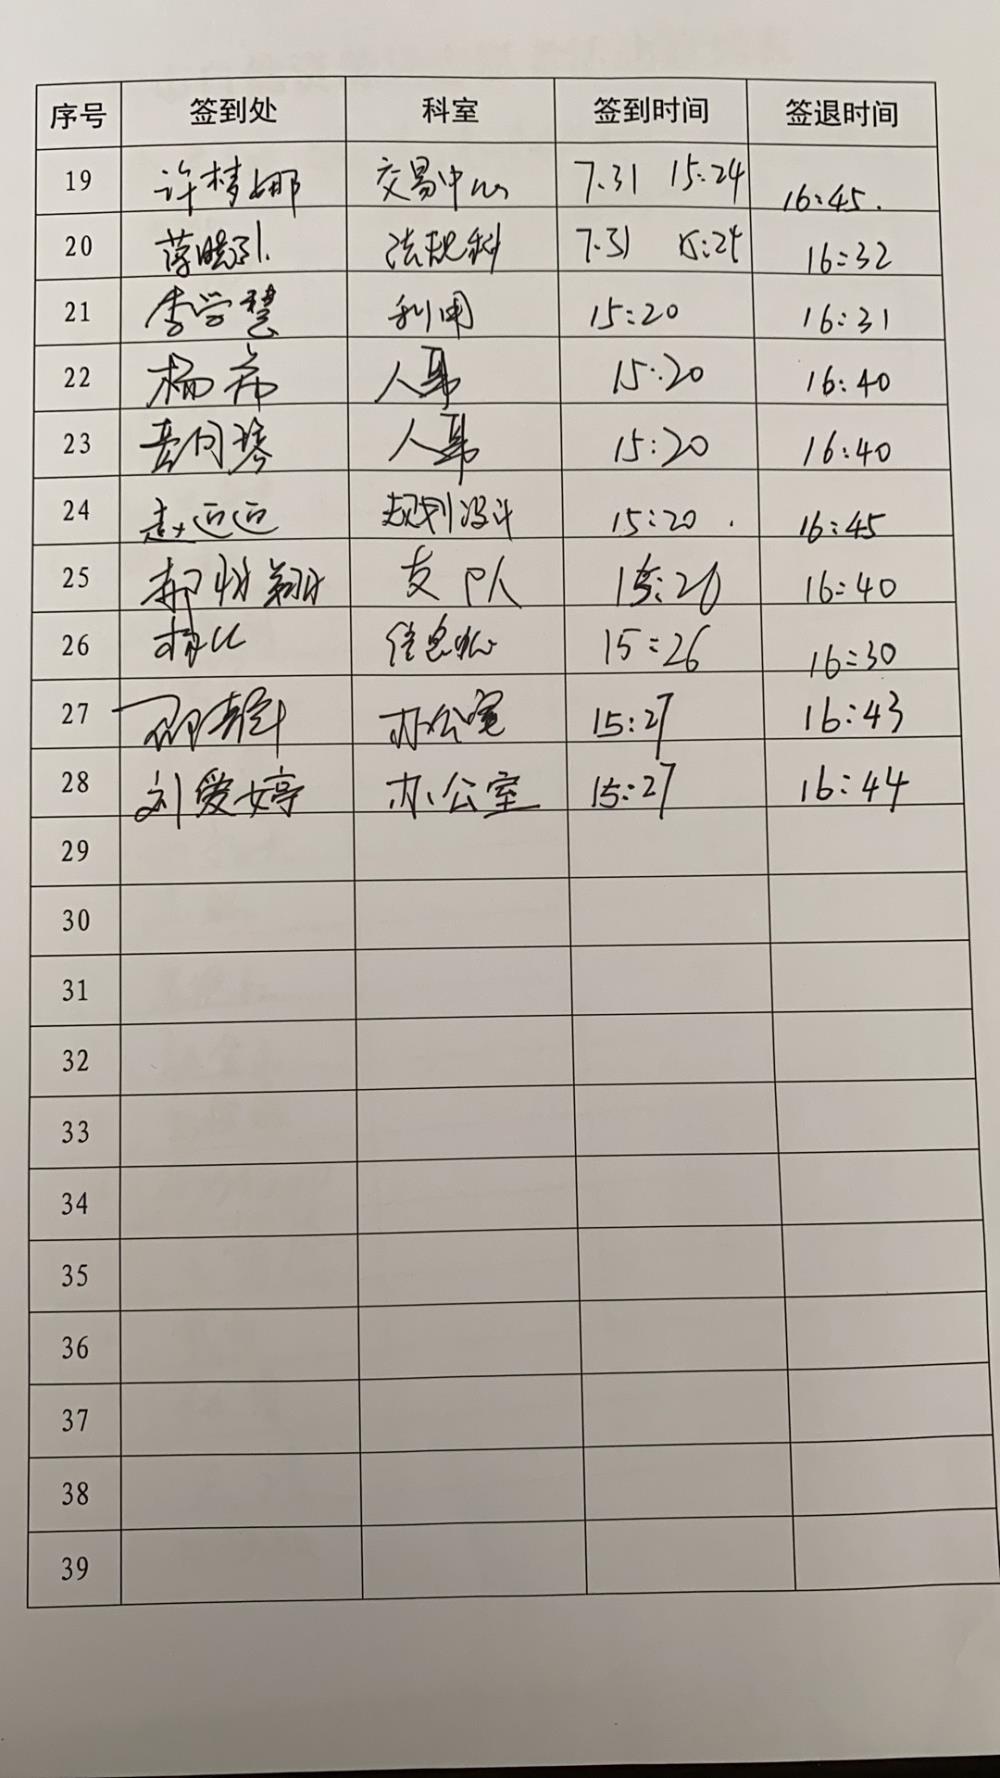 序号 签到处 科室 签到时间 签退时间
19 许梦娜 交易中心 7.31 15:24 16:45.
20 法规科 7.31 15:24 16:32
21 李学慧 利用 15:20 16:31
22 杨希 人事 15:20 16:40
23 人事 15:20 16:40
24 赵迎迎 规划设计 15:20. 16:45
25 支队 15:26 16:40
26 信息中心 15:26 16:30
27 办公室 15:27 16:43
28 刘爱婷 办公室 15:27 16:44
29
30
31
32
33
34
35
36
37
38
39